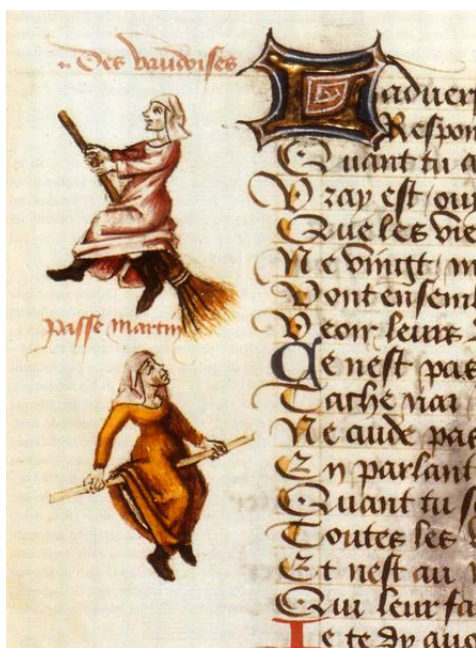 Des vaudoises
passe martin
Laduer
Respon
Quant tu a
Vray est / ou
Que les vie
Ne vingt / m
Vont ensem
Veoir leurs
Ce nest pas
Ne cuide pas
En parlant
Quant tu
Toutes les
Et nest au
Qui leur fa
Ie te dy auo